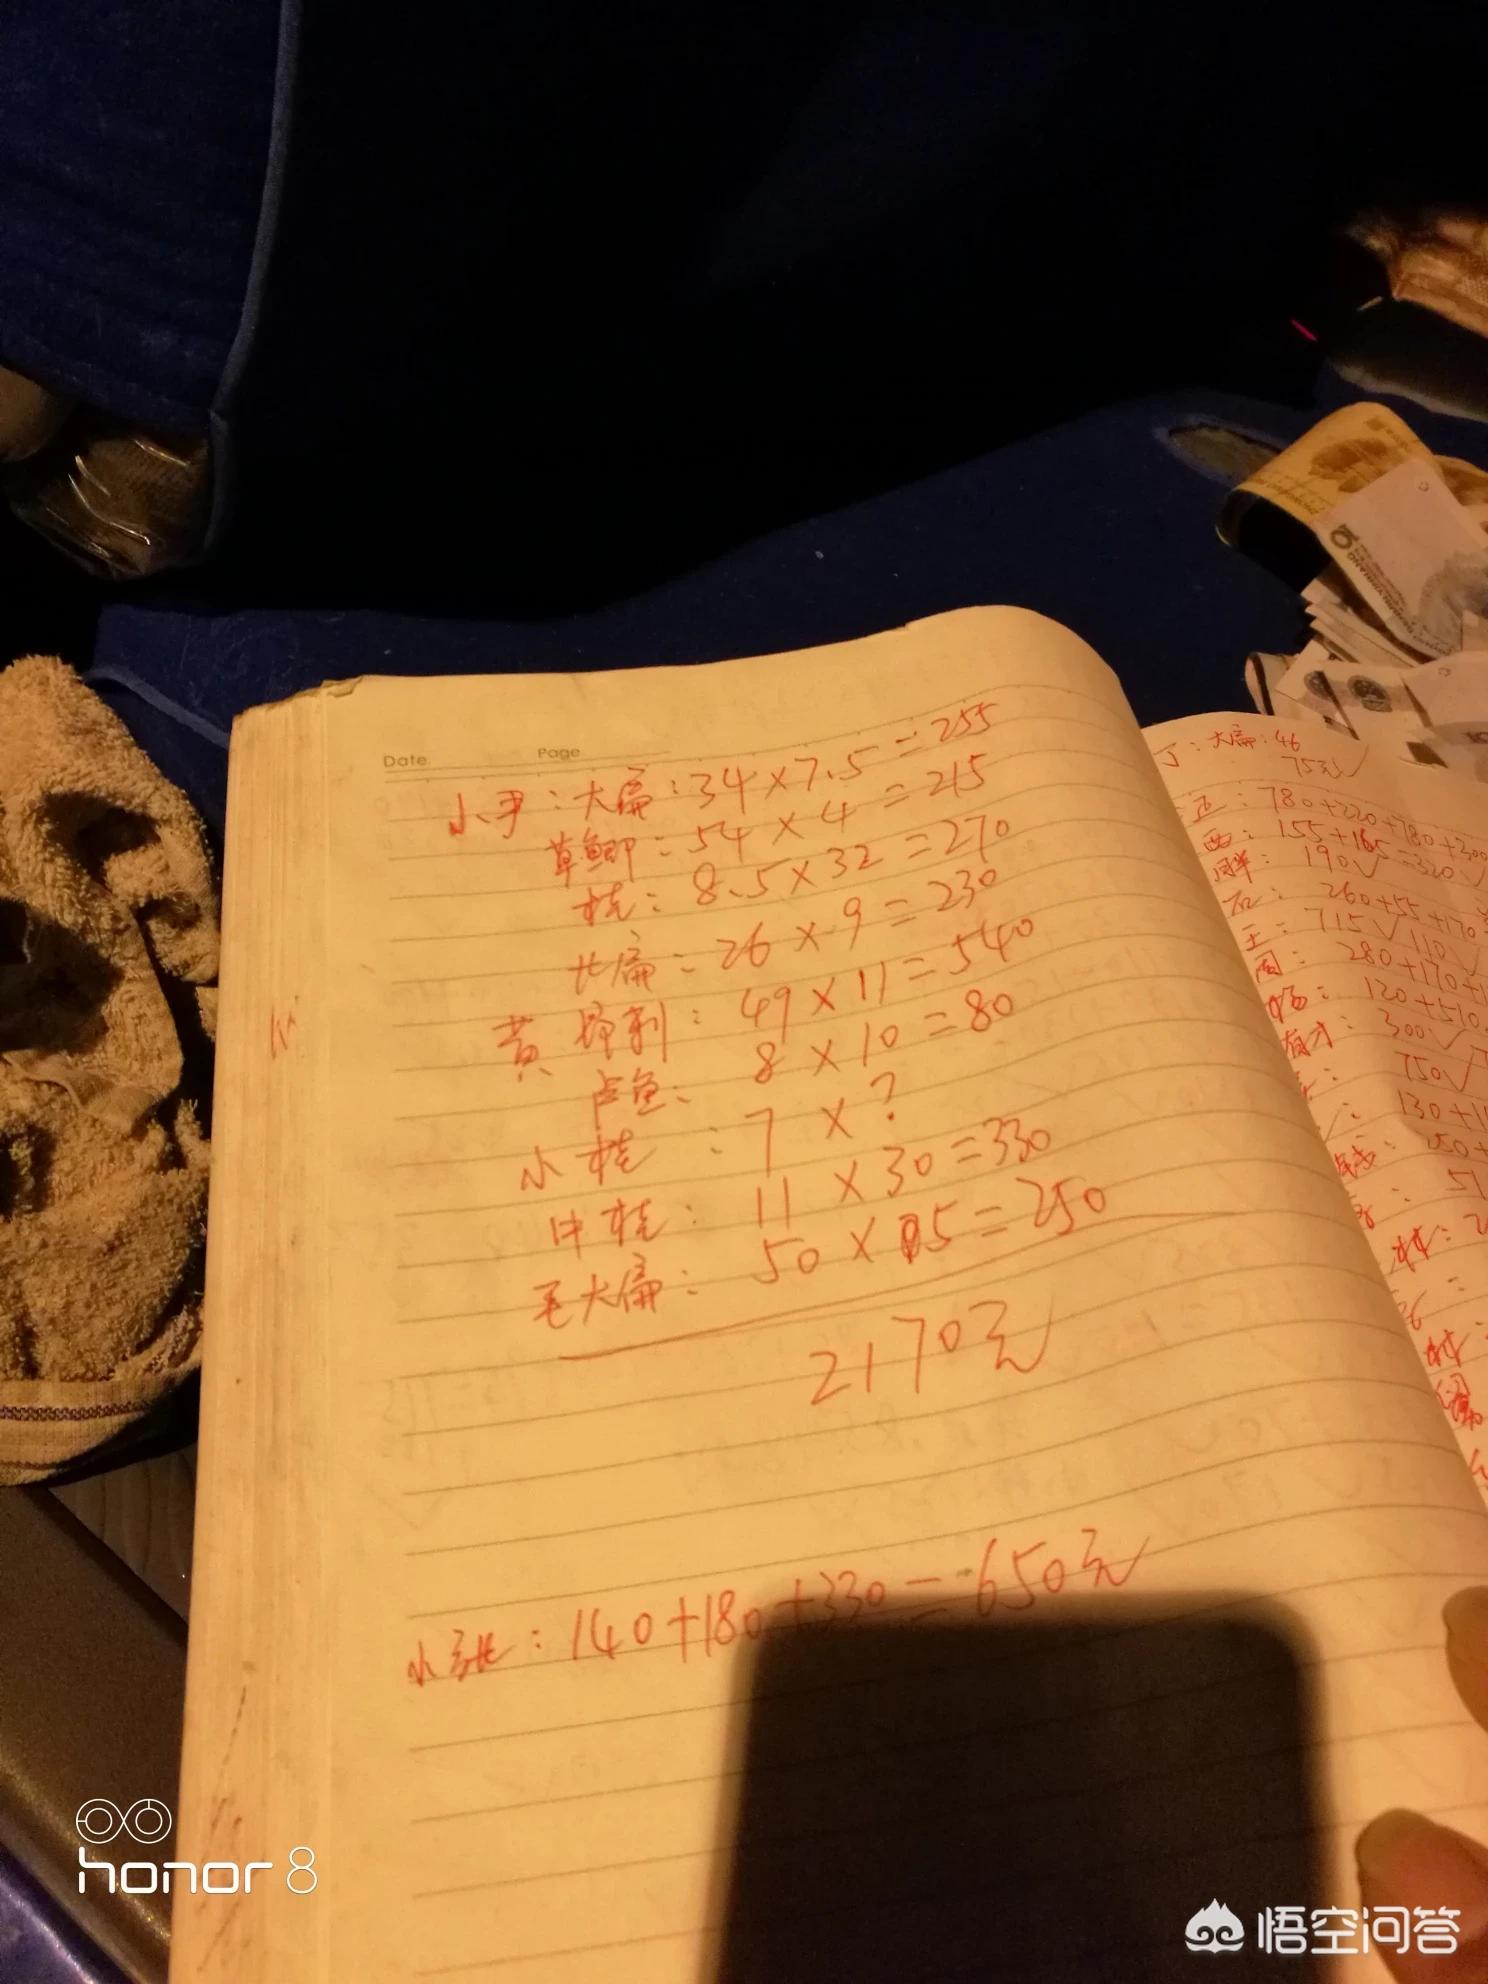 Date
Page
小尹：大扁：34×7.5=255
草鲫：54×4=215
桂：8.5×32=270
比扁：26×9=230
黄 昂刺：49×11=540
卢鱼：8×10=80
小桂：7×?
中桂：11×30=330
毛大扁：50×5=250
2170元
小张：140+180+330=650元
丁：大扁：46
75元√
780+220+780+300
西：155+165=320√
190√
石：260+55+170
王：715√ 110√
周：280+170+1
杨：120+510
有才：300√
750√
130+11
honor 8
悟空问答